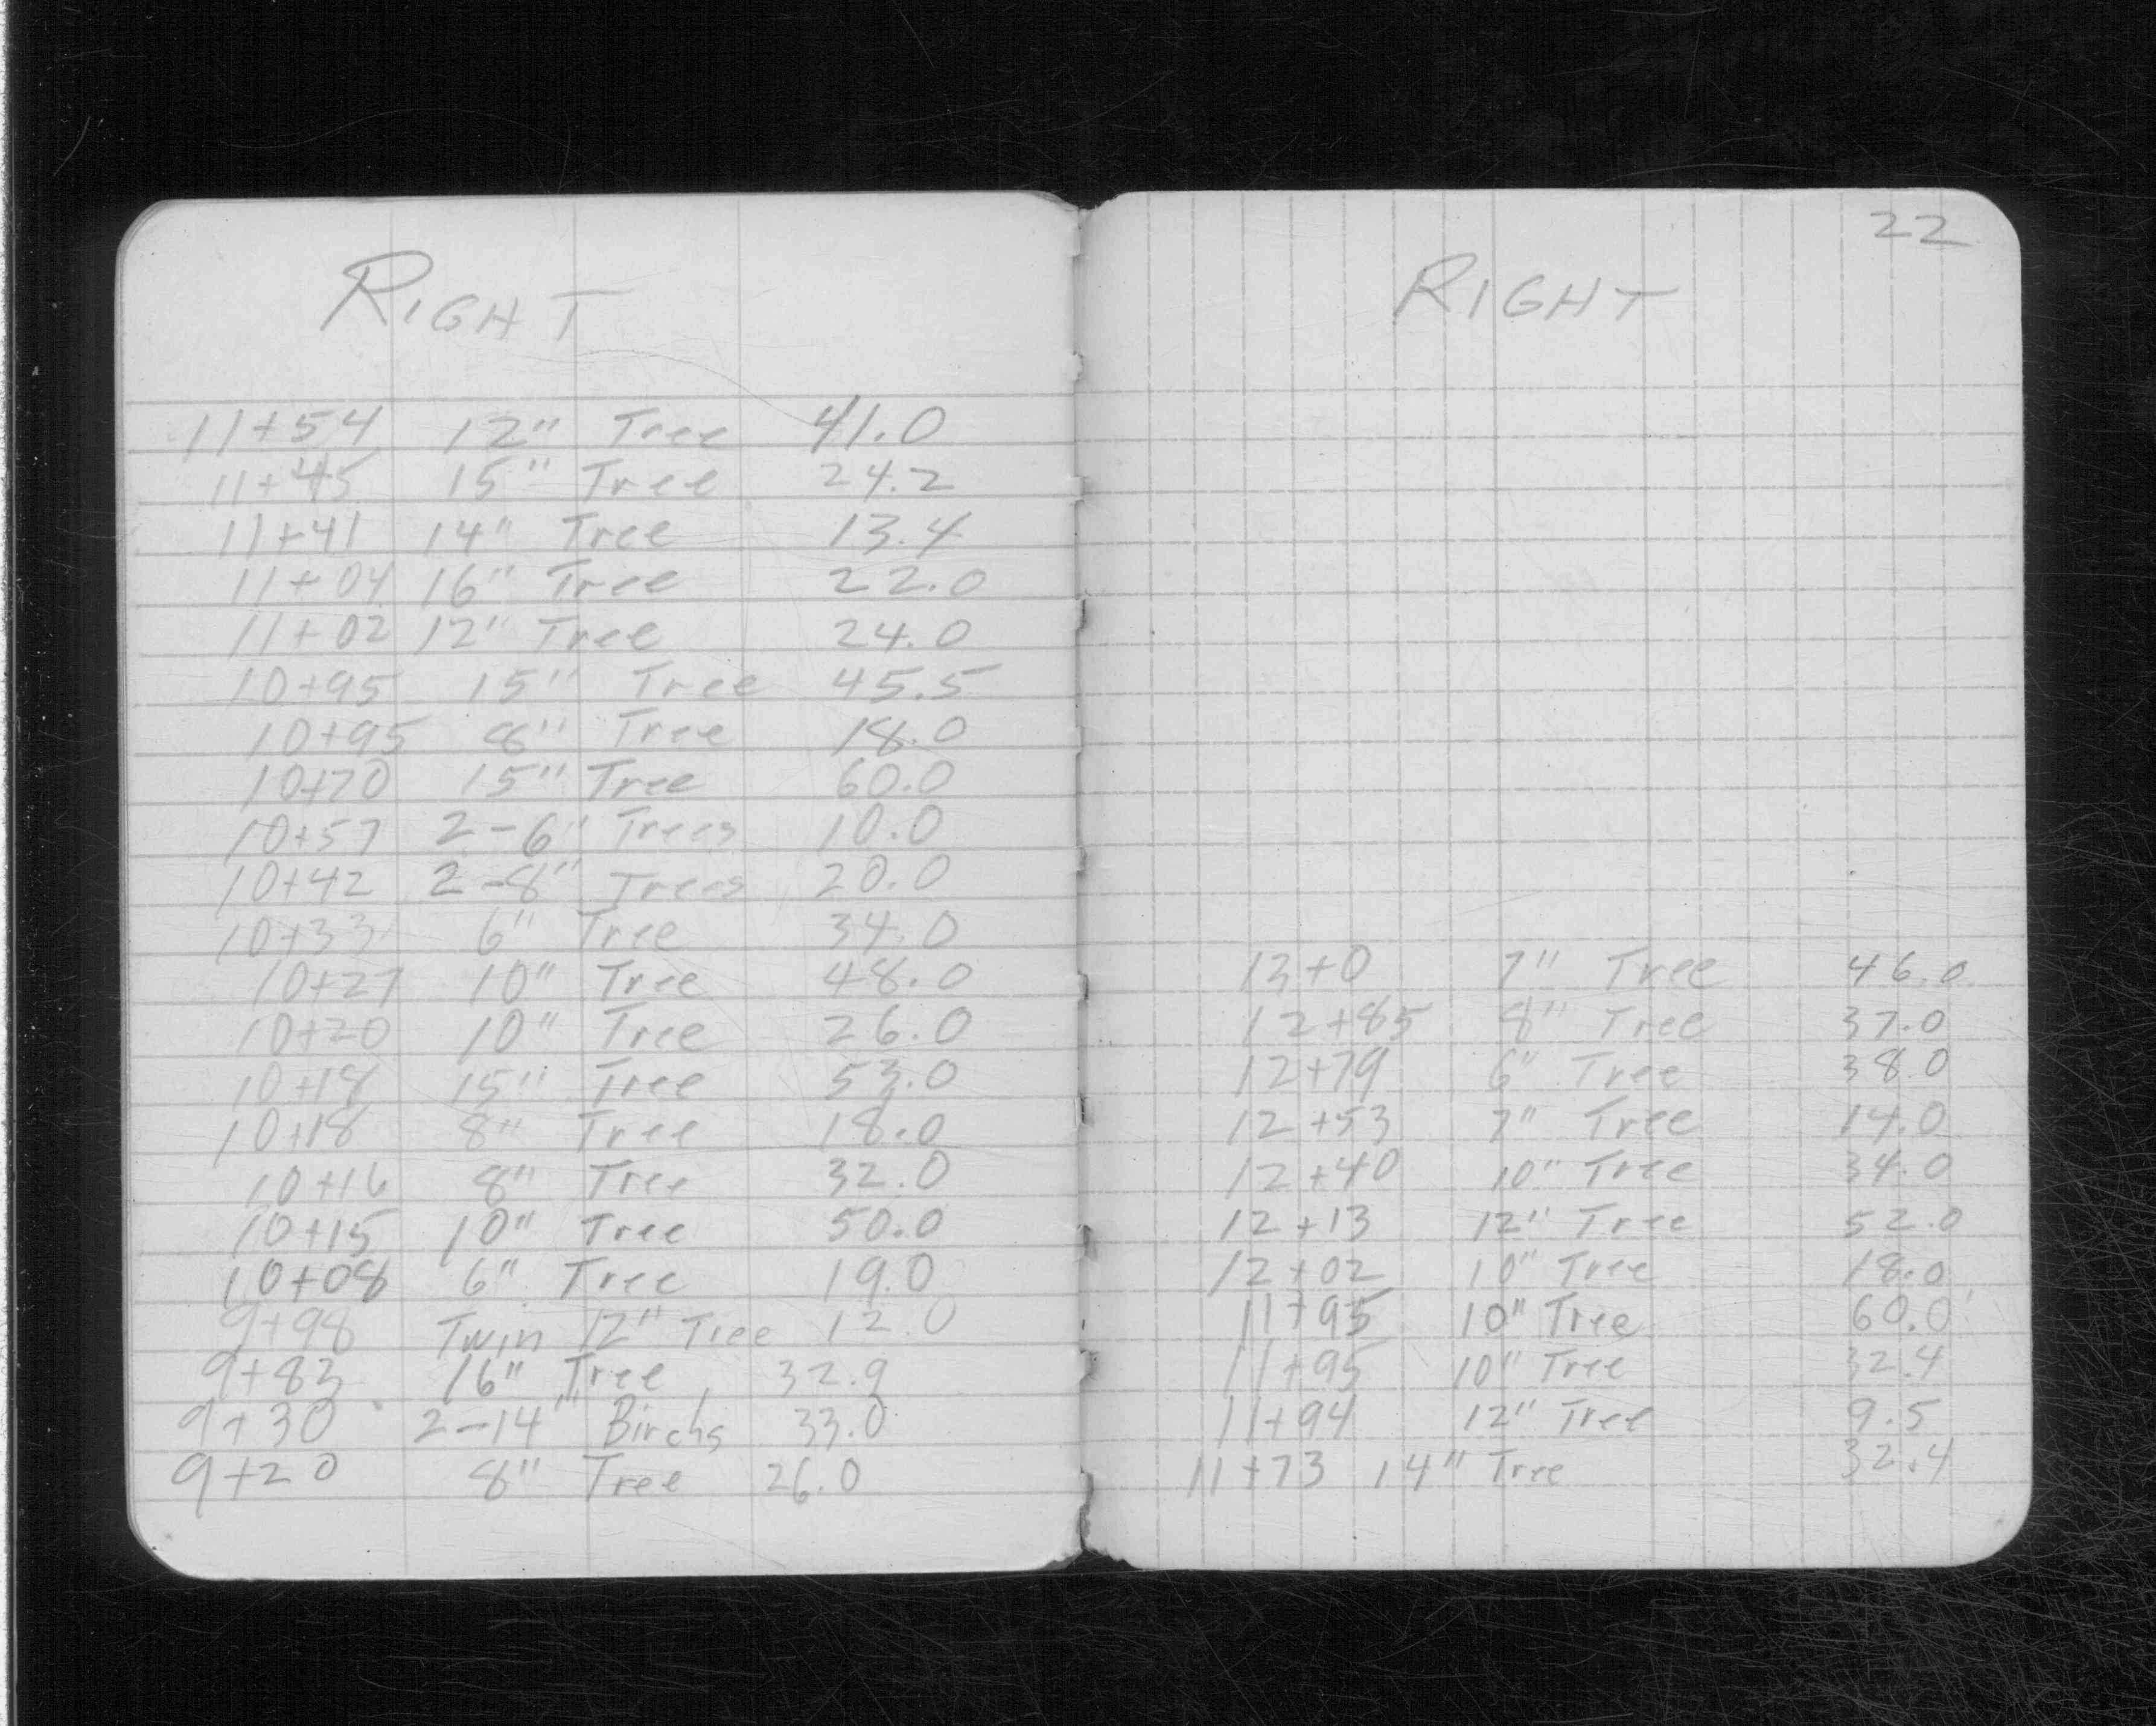 RIGHT
11+54 12" Tree 41.0
11+45 15" Tree 24.2
11+41 14" Tree 13.4
11+04 16" Tree 22.0
11+02 12" Tree 24.0
10+95 15" Tree 45.5
10+95 8" Tree 18.0
10+70 15" Tree 60.0
10+57 2-6" Trees 10.0
10+42 2-8" Trees 20.0
10+33 6" Tree 34.0
10+27 10" Tree 48.0
10+20 10" Tree 26.0
10+18 15" Tree 53.0
10+18 8" Tree 18.0
10+16 8" Tree 32.0
10+15 10" Tree 50.0
10+08 6" Tree 19.0
9+98 Twin 12" Tree 12.0
9+83 16" Tree 32.9
9+30 2-14" Birchs 33.0
9+20 8" Tree 26.0
22
RIGHT
13+0 7" Tree 46.0
12+85 8" Tree 37.0
12+79 6" Tree 38.0
12+53 7" Tree 14.0
12+40 10" Tree 34.0
12+13 12" Tree 52.0
12+02 10" Tree 18.0
11+95 10" Tree 60.0
11+95 10" Tree 32.4
11+94 12" Tree 9.5
11+73 14" Tree 32.4